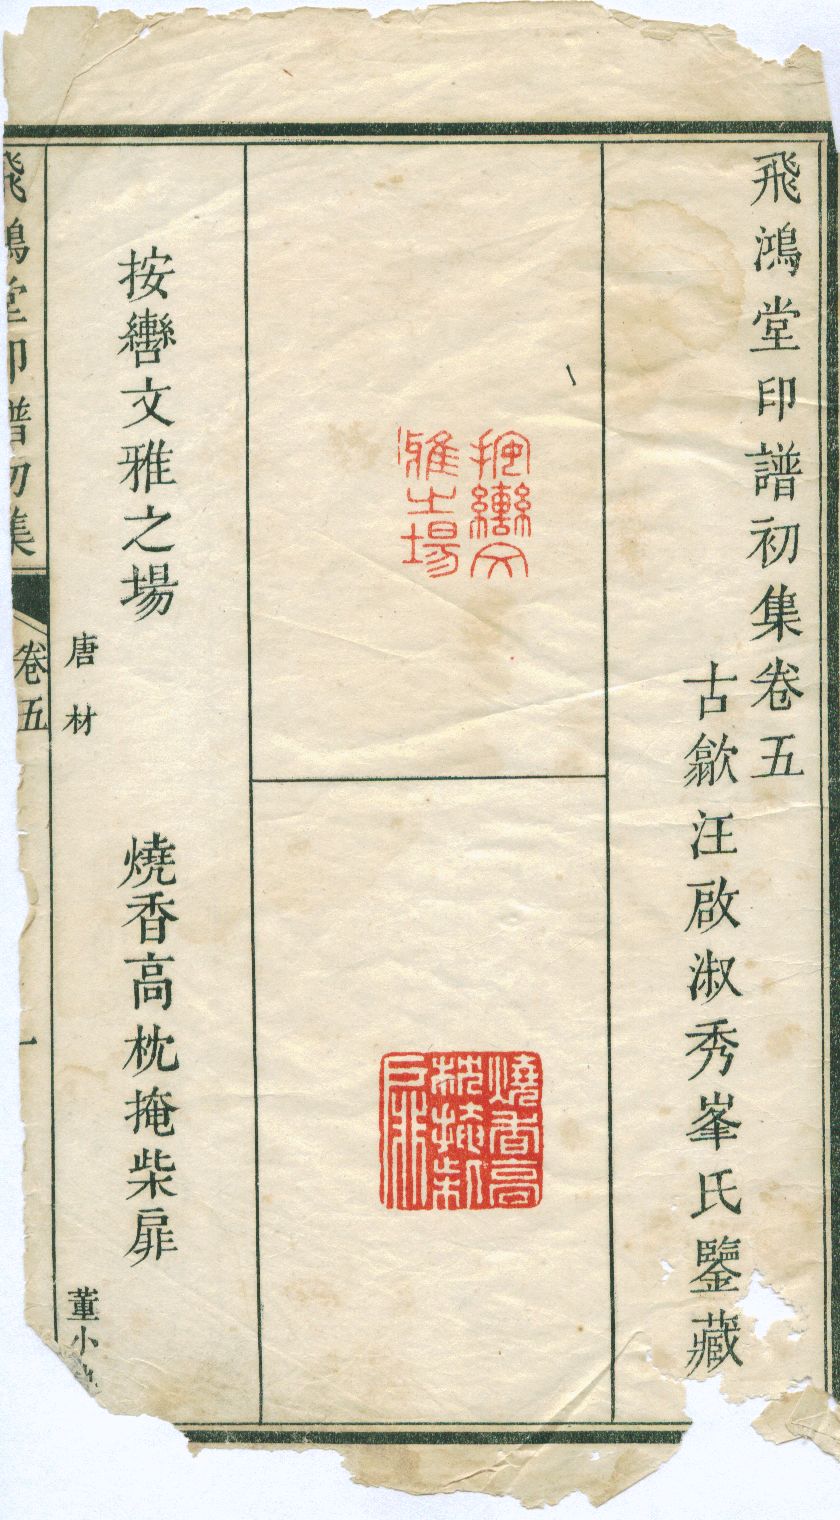 飛鴻堂印譜初集卷五
古歙汪啟淑秀峯氏鑒藏
按轡文雅之場
燒香高枕掩柴扉
按轡文雅之場
唐材
燒香高枕掩柴扉
董小
飛鴻堂印譜初集
卷五
一